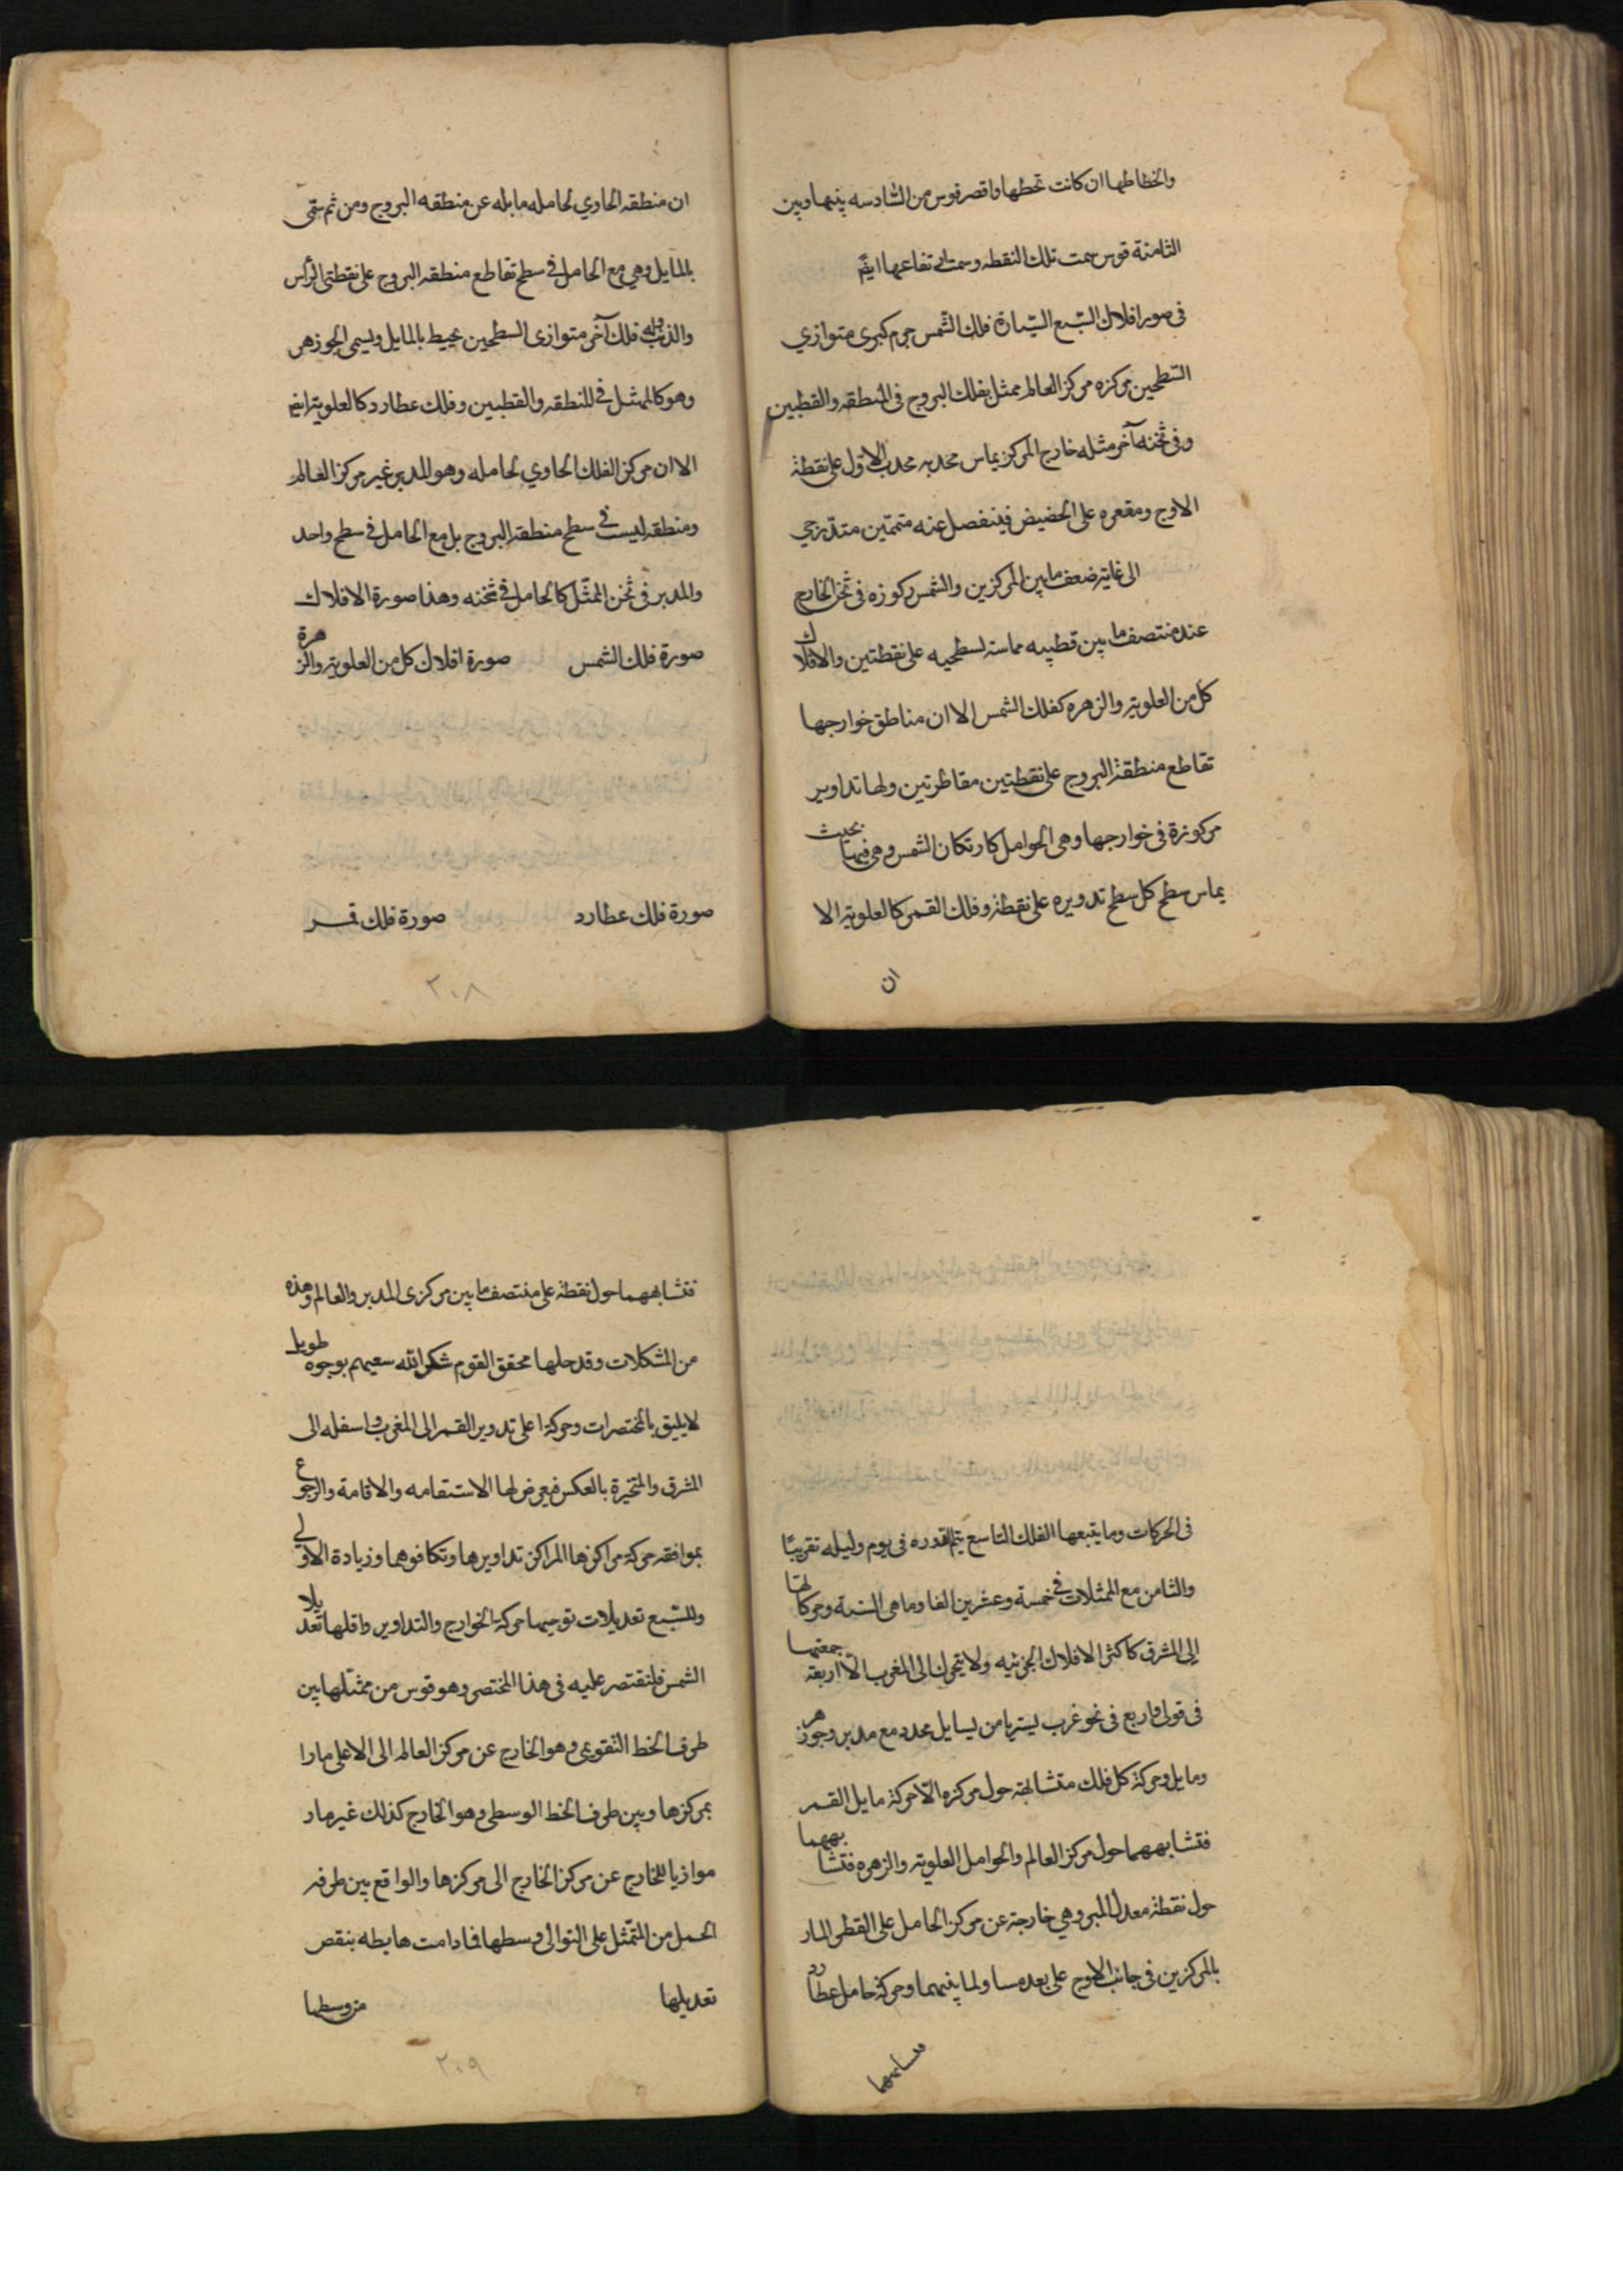 والخطاطها ان كانت تحطها واقصر قوس من السادسه بينها وبين
الثامنة قوس سمت تلك النقطه وسمت ارتفاعها ايضً
فى صور افلاك السّبع السّيارة فلك الشّمس جرم كبرى متوازي
السّطحين مركزه مركز العالم ممثل بفلك البروج فى المنطقه والقطبين
وفى ثخنه آخر مثله خارج المركز يماس محدبه محدب الاول على نقطة
الاوج ومقعره على الحضيض فينفصل عنه متممّين متدّرجي
الى غاية ضعف ما بين المركزين والشمس مركوزه فى ثخن الخارج
عند منتصف ما بين قطبيه مماسة لسطحيه على نقطتين والافلاك
كل من العلوية والزهره كفلك الشمس الا ان مناطق خوارجها
تقاطع منطقة البروج على نقطتين مقاطرتين ولها تداوير
مركوزة فى خوارجها وهى الحوامل كارتكان الشمس وهى فيها بحيث
يماس سطح كل سطح تدويره على نقطة وفلك القمر كالعلوية الا
ان
ان منطقه الحاوي لحامله مايله عن منطقه البروج ومن ثم سمّى
بالمايل وهى مع الحامل فى سطح تقاطع منطقه البروج على نقطتى الرأس
والذنب وله فلك آخر متوازى السطحين محيط بالمايل ويسمى الجوزهر
وهو كالممثل فى المنطقه والقطبين وفلك عطارد كالعلوية ايضً
الا ان مركز الفلك الحاوي لحامله وهو المدير غير مركز العالم
ومنطقه ليست فى سطح منطقة البروج بل مع الحامل فى سطح واحد
والمدير فى ثخن الممثّل كالحامل فى ثخنه وهذا صورة الافلاك
صورة فلك الشمس صورة افلاك كل من العلوية والزهرة
صورة فلك عطارد صورة فلك قمر
٢٠٨
فى الحركات وما يتبعها الفلك التاسع يتم دوره فى يوم وليله تقريبًا
والثامن مع الممثلات فى خمسة وعشرين الفا وما هى السنة وحركاتها
الى المشرق كاكثر الافلاك الجزئيه ولا يتحرك الى المغرب الّا اربعة جمعتها
فى قولى واربع فى نحو غرب يسير يا من يسايل محدد مع مدير وجوزهر
ومايل وحركة كل فلك متشابهة حول مركزه الّا حركة مايل القمر
فتشابههما حول مركز العالم والحوامل العلوية والزهره فتشابهها
حول نقطة معدل المسير وهي خارجة عن مركز الحامل على القطر المار
بالمركزين فى جانب الاوج على بعد مساو لما بينهما وحركة حامل عطارد
فتشابهها
فتشابههما حول نقطة على منتصف ما بين مركزى المدير والعالم وهذه
من المشكلات وقد حلها محقق القوم شكر الله سعيهم بوجوه طويل
لا يليق بالمختصرات وحركة اعلى تدوير القمر الى المغرب واسفله الى
المشرق والمتحيرة بالعكس فيعرض لها الاستقامه والاقامة والرجوع
بموافقه حركة مراكزها المراكز تداويرها وتكافوهما وزيادة الاولى
وللسّبع تعديلات توجبها حركة الخوارج والتداوير واقلها تعديلا
الشمس فلنقتصر عليه فى هذا المختصر وهو قوس من ممثلها بين
طرف الخط التقويمى وهو الخارج عن مركز العالم الى الاعلى مارا
بمركزها وبين طرف الخط الوسطى وهو الخارج كذلك غير مار
موازيا للخارج عن مركز الخارج الى مركزها والواقع بين طرفه
الحمل من الممثّل على التوالى وسطها فمادامت هابطه ينقص
تعديلها من وسطها
٢٠٩